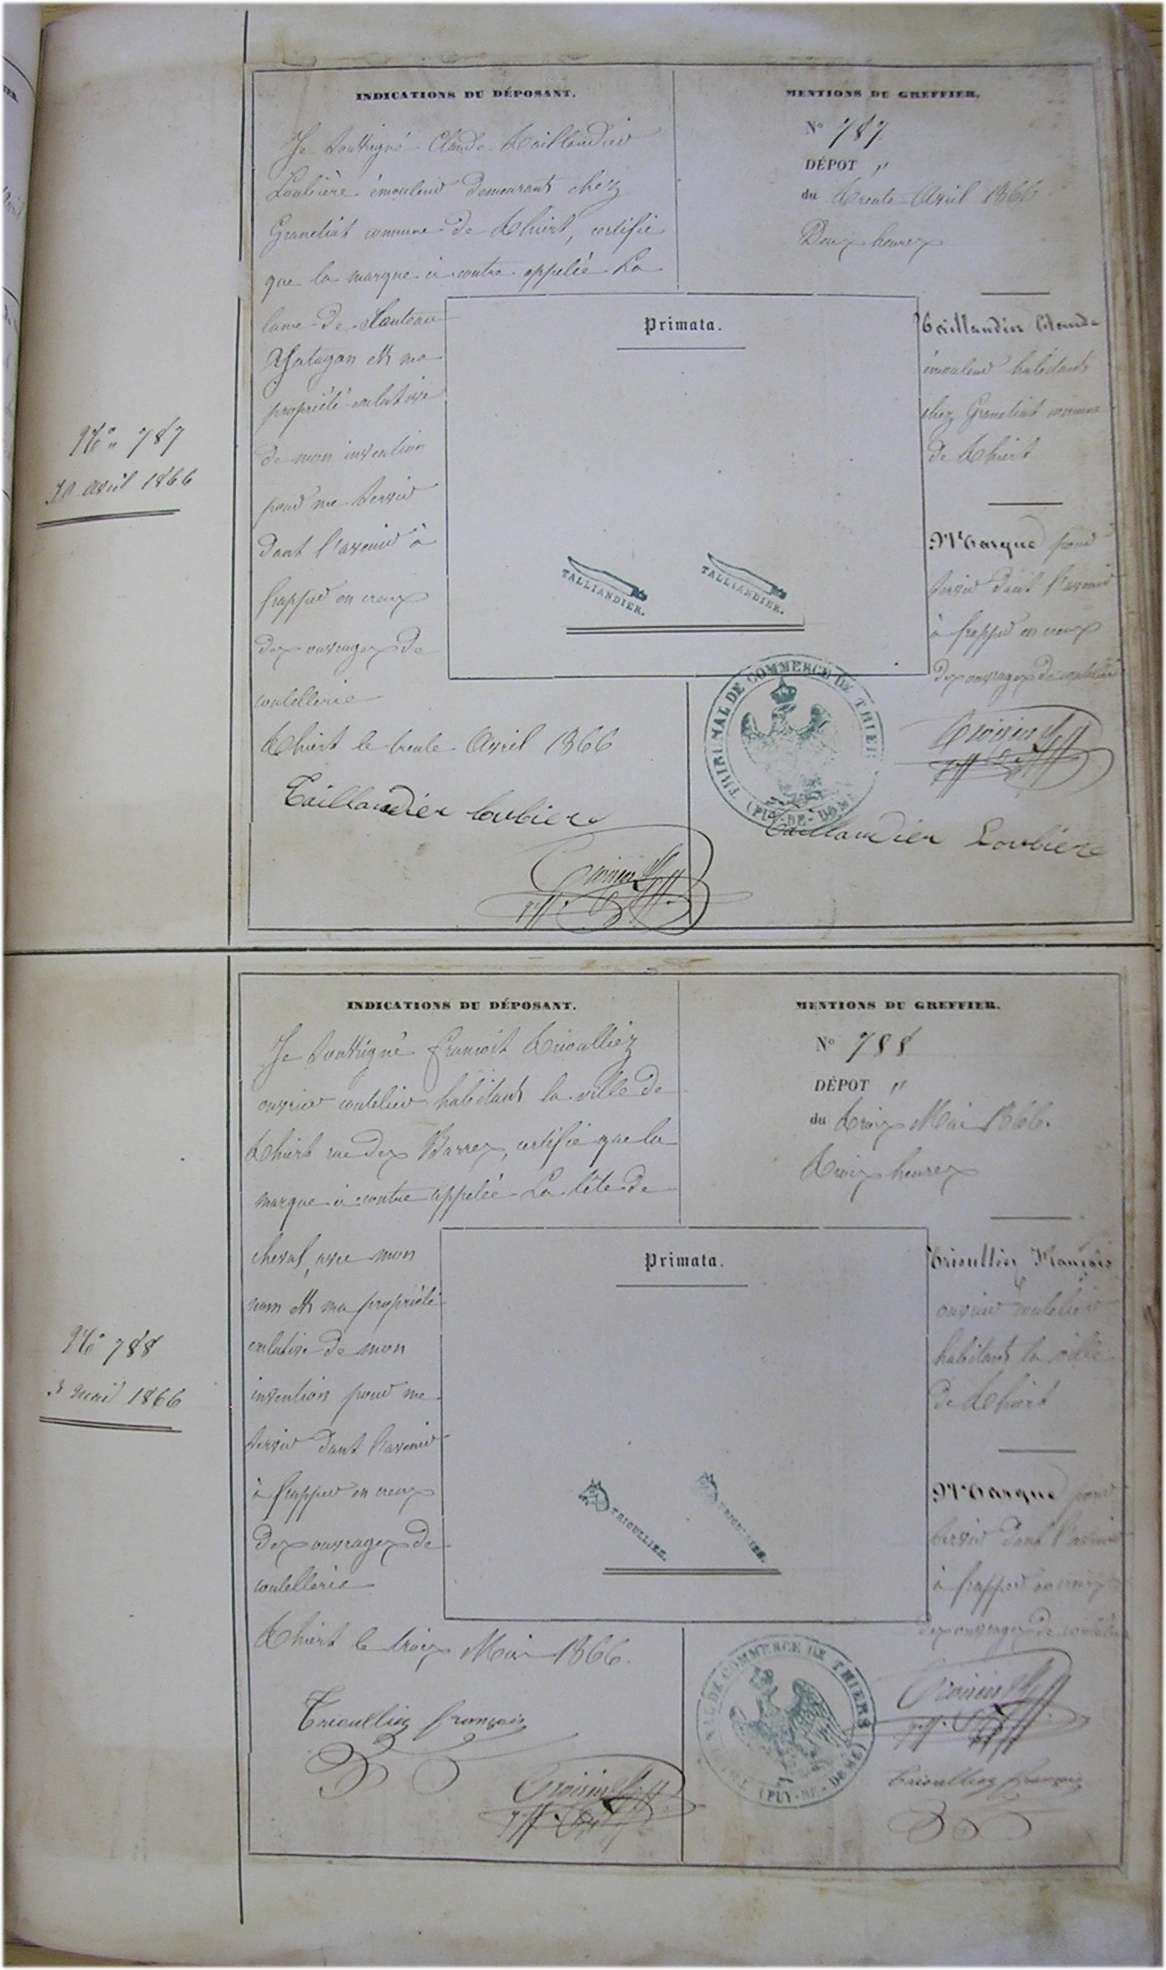 INDICATIONS DU DÉPOSANT.
Je soussigné Claude Taillandier
Loubière émouleur demeurant chez
Granetiat commune de Thiers, certifie
que la marque ci contre appelée La
lame de Couteau
Yatagan est ma
propriété exclusive
de mon invention
pour me servir
dans l'avenir à
frapper en creux
des ouvrages de
coutellerie
Thiers le trente Avril 1866
Taillandier loubiere
MENTIONS DU GREFFIER.
N° 787
DÉPOT "
du trente Avril 1866
Deux heures
Primata.
TALLIANDIER.
TALLIANDIER.
Taillandier Claude
émouleur habitant
chez Granetiat commune
de Thiers
Marque pour
servir dans l'avenir
à frapper en creux
des ouvrages de coutellerie
TRIBUNAL DE COMMERCE DE THIERS
(PUY-DE-DOME)
Taillandier Loubière
N° 787
30 avril 1866
INDICATIONS DU DÉPOSANT.
Je soussigné françois Trioulliez
ouvrier coutelier habitant la ville de
Thiers rue des Barres, certifie que la
marque ci contre appelée La tête de
cheval, avec mon
nom est ma propriété
exclusive de mon
invention pour me
servir dans l'avenir
à frapper en creux
des ouvrages de
coutellerie
Thiers le trois Mai 1866.
Trioulliez françois
MENTIONS DU GREFFIER.
N° 788
DÉPOT "
du trois Mai 1866.
Trois heures
Primata.
TRIOULLIEZ.
TRIOULLIEZ.
Trioullier François
ouvrier coutelier
habitant la ville
de Thiers
Marque pour
servir dans l'avenir
à frapper en creux
des ouvrages de coutellerie
DE COMMERCE DE THIERS
(PUY-DE-DOME)
Trioulliez françois
N° 788
3 mai 1866